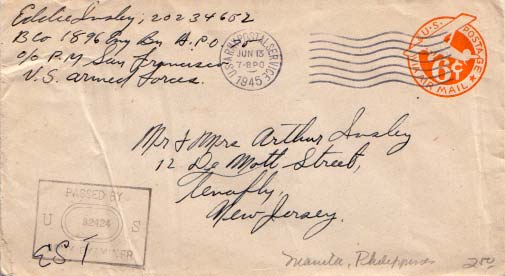 Eddie Insley, 20234602
B Co 1896 Eng Bn A.P.O. 70
c/o P.M. San Francisco
U.S. Armed Forces.
U.S. ARMY POSTAL SERVICE
JUN 13
7-8PM
1945
U.S. POSTAGE
VIA AIR MAIL
6¢
Mr & Mrs Arthur Insley
12 De Mott Street,
Tenafly,
New Jersey.
PASSED BY
U S
52424
ARMY EXAMINER
Manila, Philippines
200